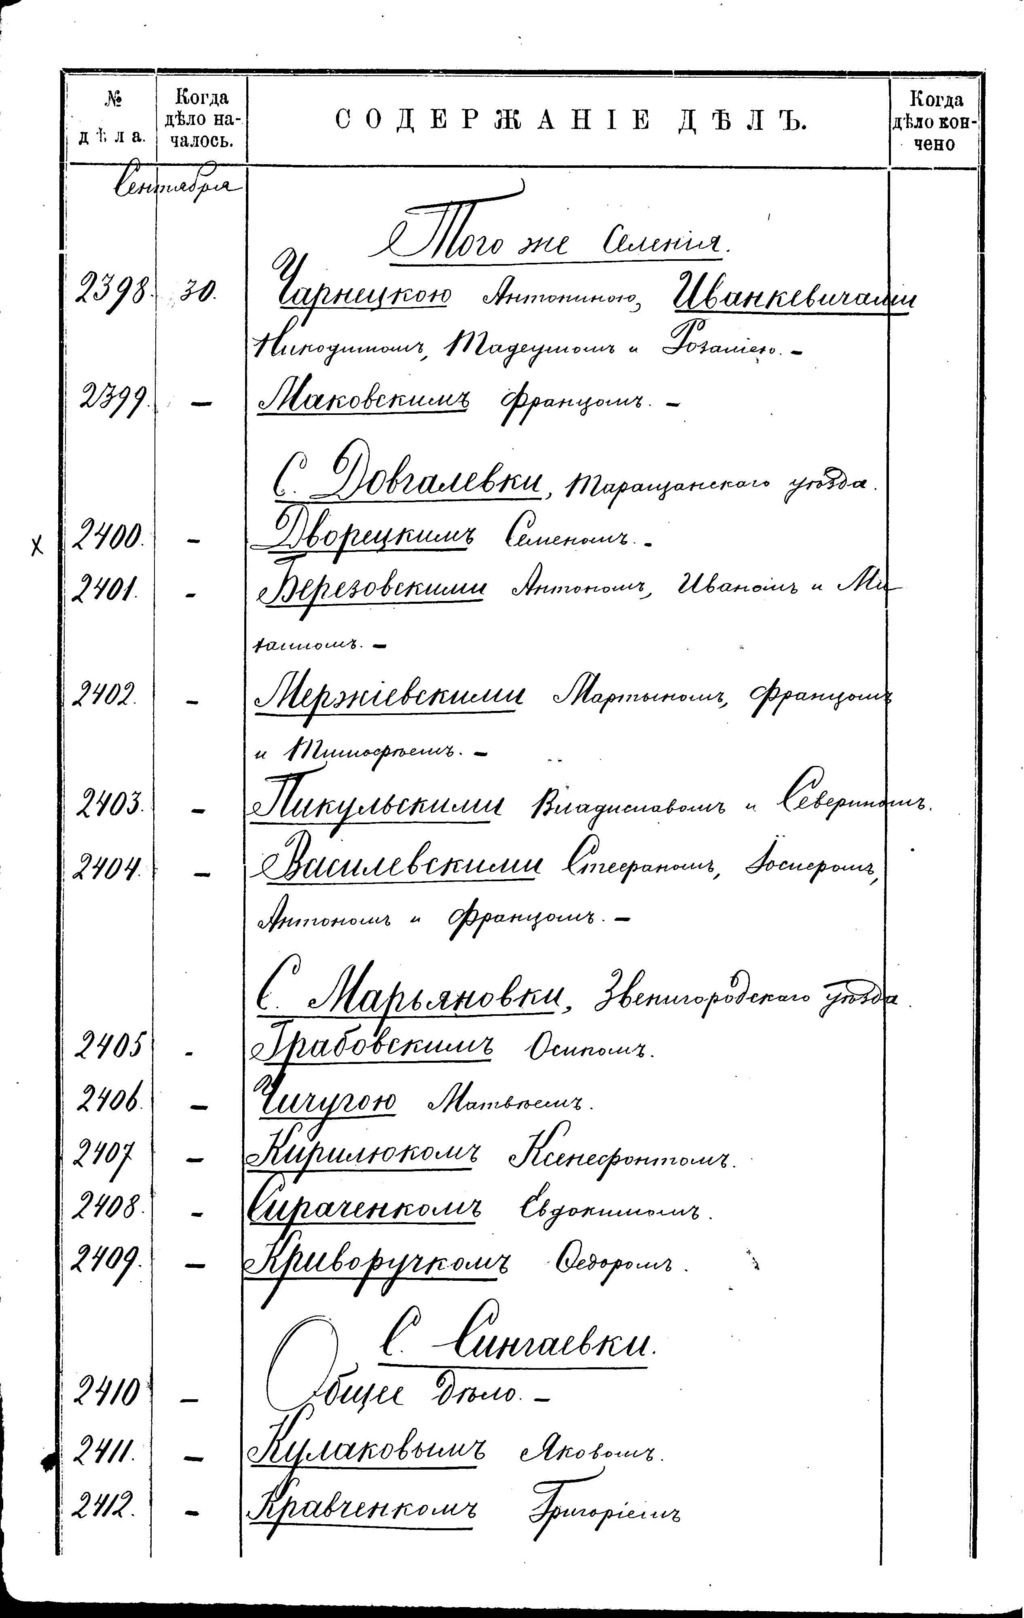 № дѣла.
Когда дѣло на-чалось.
СОДЕРЖАНІЕ ДѢЛЪ.
Когда дѣло кон-чено
Сентября
Того же Селенія.
2398. 30. Чарнецкою Антониною, Иванкевичами
Никодимомъ, Тадеушомъ и Розаліею. –
2399. – Маковскимъ Францомъ. –
С. Довгалевки, Таращанскаго уѣзда.
х 2400. – Дворецкимъ Семеномъ. –
2401. – Березовскими Антономъ, Иваномъ и Ми
хаиломъ. –
2402. – Мержіевскими Мартыномъ, Францомъ
и Тимофѣемъ. –
2403. – Пикульскими Владиславомъ и Севериномъ.
2404. – Василевскими Стефаномъ, Іосифомъ,
Антономъ и Францомъ. –
С. Марьяновки, Звенигородскаго уѣзда.
2405 – Грабовскимъ Осипомъ.
2406. – Чичугою Матвѣемъ.
2407 – Кирилюкомъ Ксенефонтомъ.
2408. – Сираченкомъ Евдокимомъ.
2409. – Криворучкомъ Федоромъ.
С. Сингаевки.
2410 – Общее дѣло. –
2411. – Кулаковымъ Яковомъ.
2412. – Кравченкомъ Григоріемъ